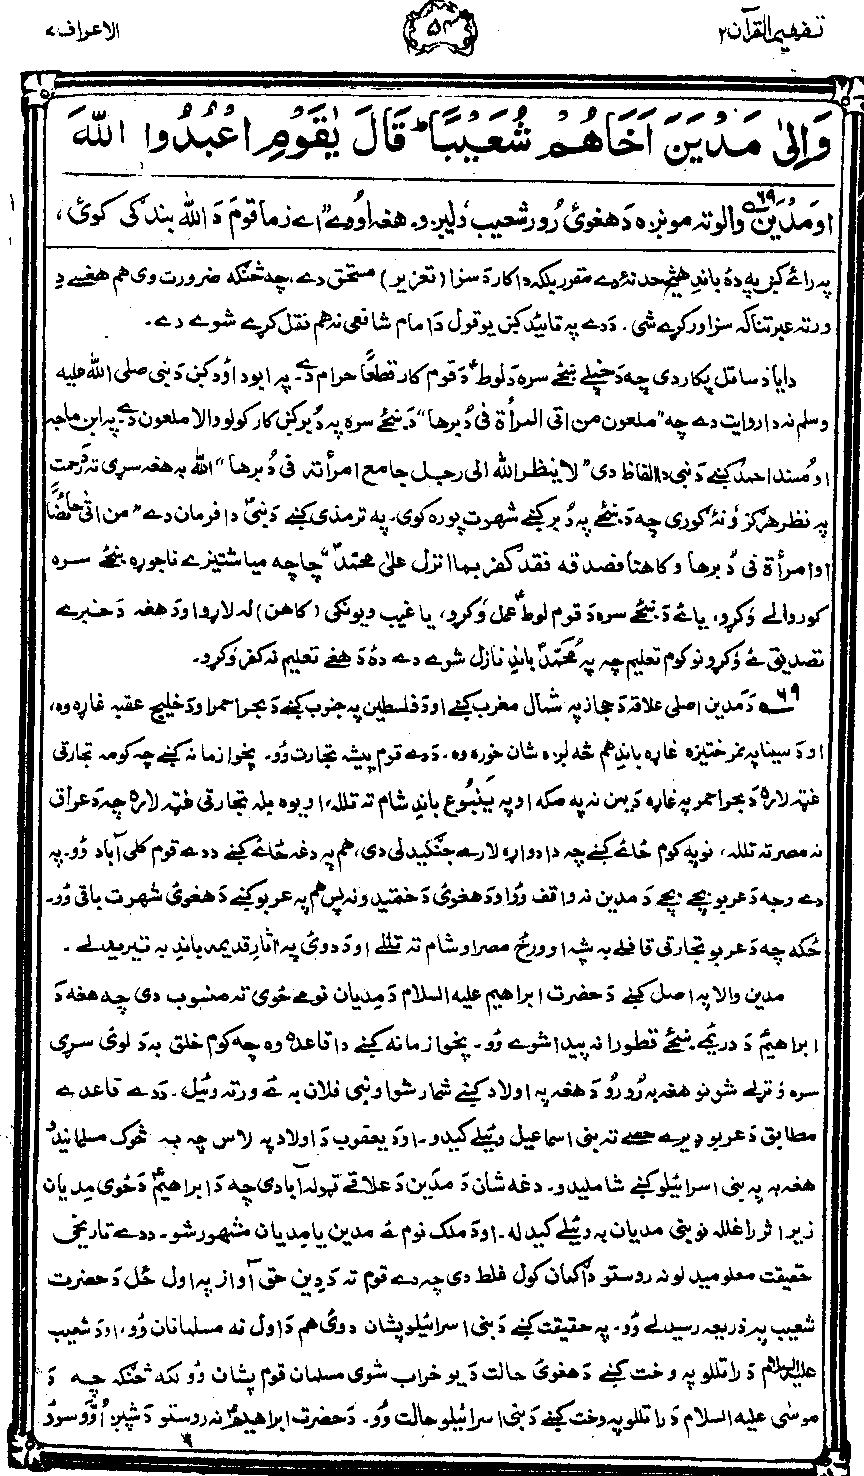 تفهیم القرآن ۲
۵۴
الاعراف ۷
وَاِلٰى مَدْيَنَ اَخَاهُمْ شُعَيْبًا ؕ قَالَ يٰقَوْمِ اعْبُدُوا اللّٰهَ
او مَدْیَن ۶۹ والو ته مونږه دَ هغوئ رُور شعیب ؑ ولیږو. هغه اُووے "اے زما قوم دَ الله بندګی کوئ،
په رائے کښ په دهٔ باندِ هیڅ حد نهٔ دے مقرر بلکه دا کار دَ سزا (تعزیر) مستحق دے، چه څنګه ضرورت وی هم هغسے دِ
ورته عبرتناکه سزا ورکړے شی. دَ دے په تائید کښ یو قول دَ امام شافعی نه هم نقل کړے شوے دے.
دا یاد ساتل پکار دی چه دَ خپلے ښځے سره دَ لوط ؑ دَ قوم کار قطعاً حرام دے. په ابوداؤد کښ دَ نبی صلی الله علیه
وسلم نه دا روایت دے چه "ملعون من اتی المرأة فی دُبرها" دَ ښځے سره په دُبر کښ کار کولو والا ملعون دے. په ابن ماجه
او مُسند احمد کښے دَ نبی ؐ دا الفاظ دی "لا ینظر الله الی رجل جامع امرأته فی دُبرها" "الله په هغه سړی ته دَ رحمت
په نظر هرګز وُ نهٔ ګوری چه دَ ښځے په دُبر کښے شهوت پوره کوی. په ترمذی کښے دَ نبی ؐ دا فرمان دے "من اتٰی حائضًا
او امرأة فی دُبرها و کاهنا فصدقه فقد کفر بما انزل علیٰ محمد ؐ" چاچه میاشتیزے ناجوړه ښځے سره
کوروالے وَکړو، یا ئے دَ ښځے سره دَ قوم لوط ؑ عمل وَکړو، یا غیب ویونکی (کاهن) له لاړو او دَ هغه دَ خبرے
تصدیق ئے وَکړو نو کوم تعلیم چه په محمد ؐ باندِ نازل شوے دے دهٔ دَ هغے تعلیم نه کفر وَکړو.
۶۹ دَ مدین اصلی علاقه دَ حجاز په شمال مغرب کښے او دَ فلسطین په جنوب کښے دَ بحر احمر او دَ خلیج عقبه غاړه وه،
او دَ سینا په نمرختیزه غاړه باندِ هم څه لږه شان خوره وه. دَ دے قوم پیشه تجارت وُو. پخوا زمانه کښے چه کومه تجارتی
غټه لاره دَ بحر احمر په غاړه دَ یمن نه په مکه او په یَنبُوع باندِ شام ته تلله، او یوه بله تجارتی غټه لاره چه دَ عراق
نه مصر ته تلله، نو په کوم ځائے کښے چه دا دواړه لارے جنګیدلی دی، هم په دغه ځائے کښے دَ دے قوم کلی آباد وُو. په
دے وجه دَ عربو بچے بچے دَ مدین نه واقف وُو او دَ هغوئ دَ ختمیدو نه پس هم په عربو کښے دَ هغوئ شهرت باقی وُو.
ځکه چه دَ عربو تجارتی قافلے به شپه او ورځ مصر او شام ته تللے او دَ دوئ په آثار قدیمه باندِ به تیریدلے.
مدین والا په اصل کښے دَ حضرت ابراهیم علیه السلام دَ مِدیان نومے ځوی ته منسوب دی چه هغه دَ
ابراهیم ؑ دَ دریُمے ښځے قطورا نه پیدا شوے وُو. پخوا زمانه کښے دا قاعده وه چه کوم خلق به دَ لوئ سړی
سره وَ تړلے شو نو هغه به رُو رُو دَ هغه په اولاد کښے شمار شو او بنی فلان به ئے ورته وئیل. دَ دے قاعدے
مطابق دَ عربو ډیرے حصے ته بنی اسماعیل وئیلے کیدو. او دَ یعقوب دَ اولاد په لاس چه به څوک مسلمانیدُو
هغه به په بنی اسرائیلو کښے شاملیدو. دغه شان دَ مدین دَ علاقے ټوله آبادی چه دَ ابراهیم ؑ دَ ځوی مِدیان
زیر اثر راغله نو بنی مدیان به وئیلے کیدله. او دَ ملک نوم ئے مدین یا مِدیان مشهور شو. دَ دے تاریخی
حقیقت معلومیدلو نه روستو دا ګمان کول غلط دی چه دے قوم ته دَ دِین حق آواز په اول ځل دَ حضرت
شعیب په ذریعه رسیدلے وُو. په حقیقت کښے دَ بنی اسرائیلو پشان دوئ هم دَ اول نه مسلمانان وُو، او دَ شعیب
علیه السلام دَ راتللو په وخت کښے دَ هغوئ حالت دَ یو خراب شوی مسلمان قوم پشان وُو لکه څنګه چه دَ
موسٰی علیه السلام دَ راتللو په وخت کښے دَ بنی اسرائیلو حالت وُو. دَ حضرت ابراهیم ؑ نه روستو دَ شپږ اُووٗ سوؤ